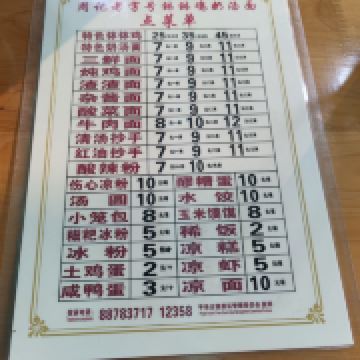 周记老字号钵钵鸡奶汤面
点菜单
特色钵钵鸡 25 35 45
特色奶汤面 7 9 11
三鲜面 7 9 11
炖鸡面 7 9 11
渣渣面 7 9 11
杂酱面 7 9 11
酸菜面 7 9 11
牛肉面 8 10 12
清汤抄手 7 9 11
红油抄手 7 9 11
酸辣粉 7 10
伤心凉粉 10 醪糟蛋 10
汤圆 10 水饺 10
小笼包 8 玉米馍馍 8
糍粑冰粉 5 稀饭 2
冰粉 5 凉糕 5
土鸡蛋 2 凉虾 5
咸鸭蛋 3 凉面 10
88783717 12358